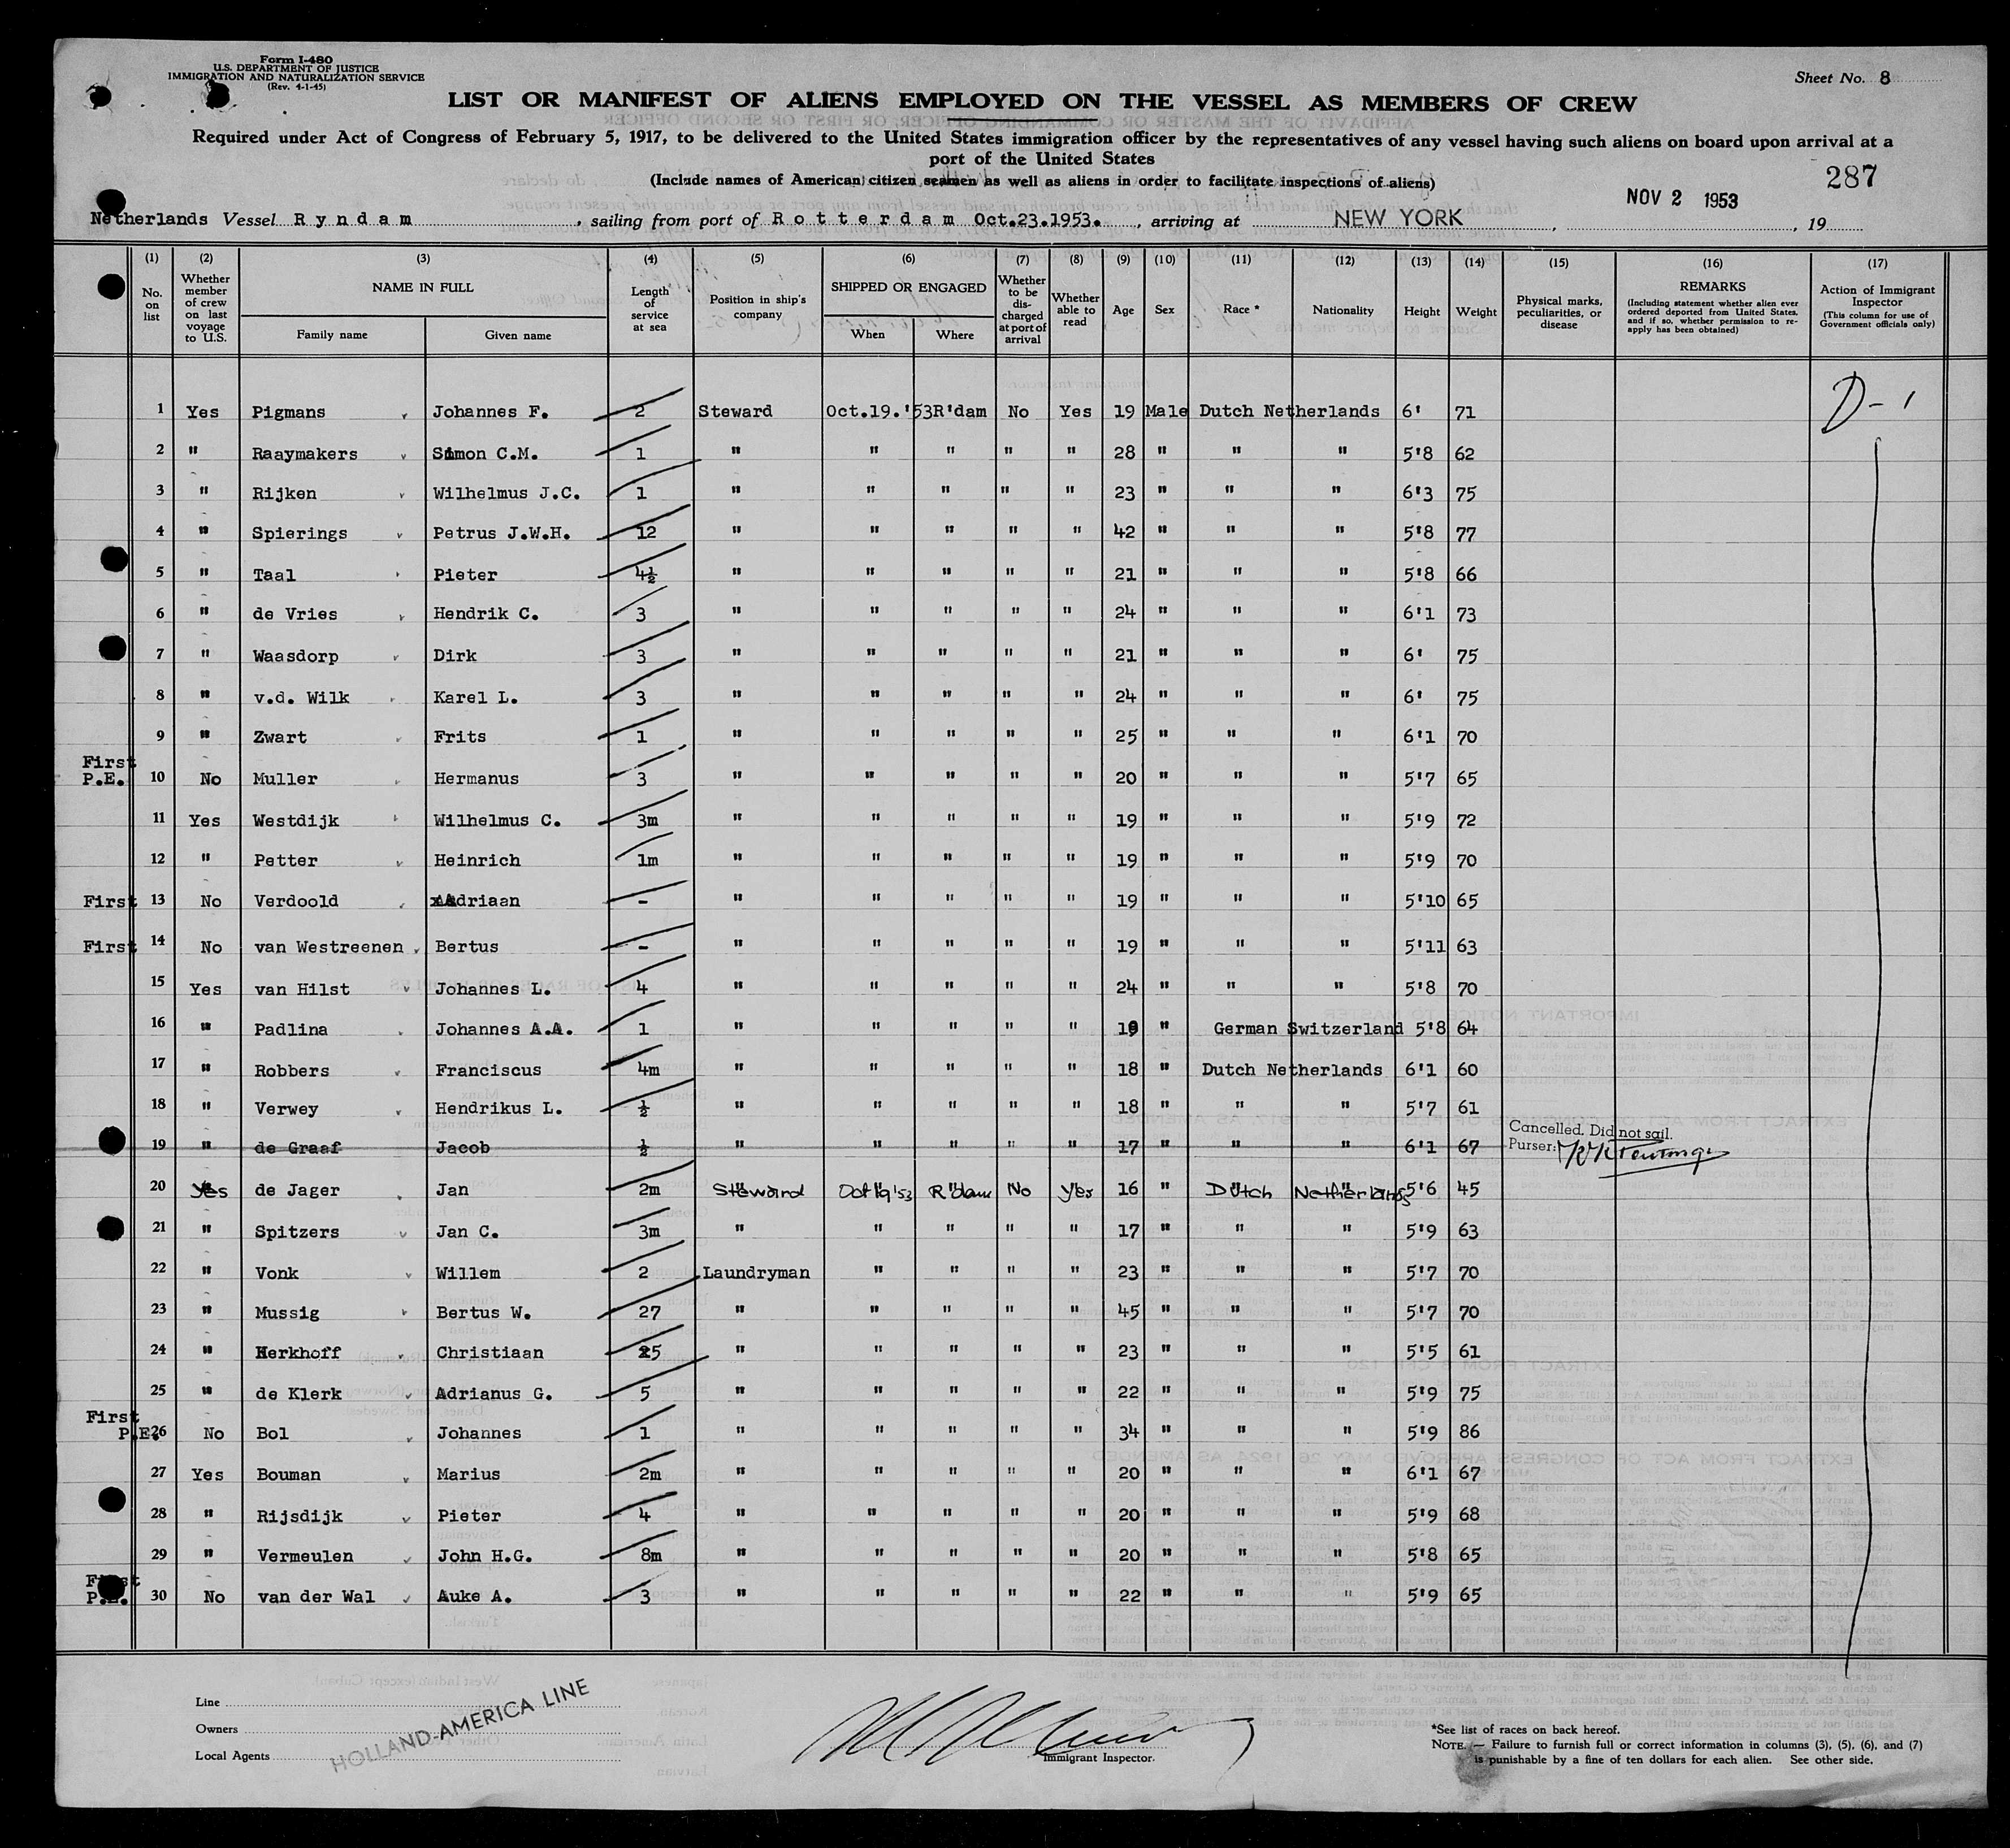 Form I-480
U.S. DEPARTMENT OF JUSTICE
IMMIGRATION AND NATURALIZATION SERVICE
(Rev. 4-1-45)
Sheet No. 8
LIST OR MANIFEST OF ALIENS EMPLOYED ON THE VESSEL AS MEMBERS OF CREW
Required under Act of Congress of February 5, 1917, to be delivered to the United States immigration officer by the representatives of any vessel having such aliens on board upon arrival at a
port of the United States
(Include names of American citizen seamen as well as aliens in order to facilitate inspections of aliens)
287
NOV 2 1953
Netherlands Vessel Ryndam, sailing from port of Rotterdam Oct.23.1953., arriving at NEW YORK, , 19
(1) (2) (3) (4) (5) (6) (7) (8) (9) (10) (11) (12) (13) (14) (15) (16) (17)
No. on list
Whether member of crew on last voyage to U.S.
NAME IN FULL
Family name
Given name
Length of service at sea
Position in ship's company
SHIPPED OR ENGAGED
When
Where
Whether to be discharged at port of arrival
Whether able to read
Age
Sex
Race *
Nationality
Height
Weight
Physical marks, peculiarities, or disease
REMARKS
(Including statement whether alien ever ordered deported from United States, and if so, whether permission to reapply has been obtained)
Action of Immigrant Inspector
(This column for use of Government officials only)
1 Yes Pigmans Johannes F. 2 Steward Oct.19.'53 R'dam No Yes 19 Male Dutch Netherlands 6' 71 D-1
2 " Raaymakers Simon C.M. 1 " " " " " 28 " " " 5'8 62
3 " Rijken Wilhelmus J.C. 1 " " " " " 23 " " " 6'3 75
4 " Spierings Petrus J.W.H. 12 " " " " " 42 " " " 5'8 77
5 " Taal Pieter 4½ " " " " " 21 " " " 5'8 66
6 " de Vries Hendrik C. 3 " " " " " 24 " " " 6'1 73
7 " Waasdorp Dirk 3 " " " " " 21 " " " 6' 75
8 " v.d. Wilk Karel L. 3 " " " " " 24 " " " 6' 75
9 " Zwart Frits 1 " " " " " 25 " " " 6'1 70
First P.E. 10 No Muller Hermanus 3 " " " " " 20 " " " 5'7 65
11 Yes Westdijk Wilhelmus C. 3m " " " " " 19 " " " 5'9 72
12 " Petter Heinrich 1m " " " " " 19 " " " 5'9 70
First 13 No Verdoold Adriaan - " " " " " 19 " " " 5'10 65
First 14 No van Westreenen Bertus - " " " " " 19 " " " 5'11 63
15 Yes van Hilst Johannes L. 4 " " " " " 24 " " " 5'8 70
16 " Padlina Johannes A.A. 1 " " " " " 19 " German Switzerland 5'8 64
17 " Robbers Franciscus 4m " " " " " 18 " Dutch Netherlands 6'1 60
18 " Verwey Hendrikus L. ½ " " " " " 18 " " " 5'7 61
19 " de Graaf Jacob ½ " " " " " 17 " " " 6'1 67 Cancelled. Did not sail.
Purser:
20 Yes de Jager Jan 2m Steward Oct 19'53 R'dam No Yes 16 " Dutch Netherlands 5'6 45
21 " Spitzers Jan C. 3m " " " " " 17 " " " 5'9 63
22 " Vonk Willem 2 Laundryman " " " " 23 " " " 5'7 70
23 " Mussig Bertus W. 27 " " " " " 45 " " " 5'7 70
24 " Kerkhoff Christiaan 5 " " " " " 23 " " " 5'5 61
25 " de Klerk Adrianus G. 5 " " " " " 22 " " " 5'9 75
First P.E. 26 No Bol Johannes 1 " " " " " 34 " " " 5'9 86
27 Yes Bouman Marius 2m " " " " " 20 " " " 6'1 67
28 " Rijsdijk Pieter 4 " " " " " 20 " " " 5'9 68
29 " Vermeulen John H.G. 8m " " " " " 20 " " " 5'8 65
First P.E. 30 No van der Wal Auke A. 3 " " " " " 22 " " " 5'9 65
Line
Owners
Local Agents
HOLLAND-AMERICA LINE
Immigrant Inspector.
*See list of races on back hereof.
NOTE. — Failure to furnish full or correct information in columns (3), (5), (6), and (7)
is punishable by a fine of ten dollars for each alien. See other side.